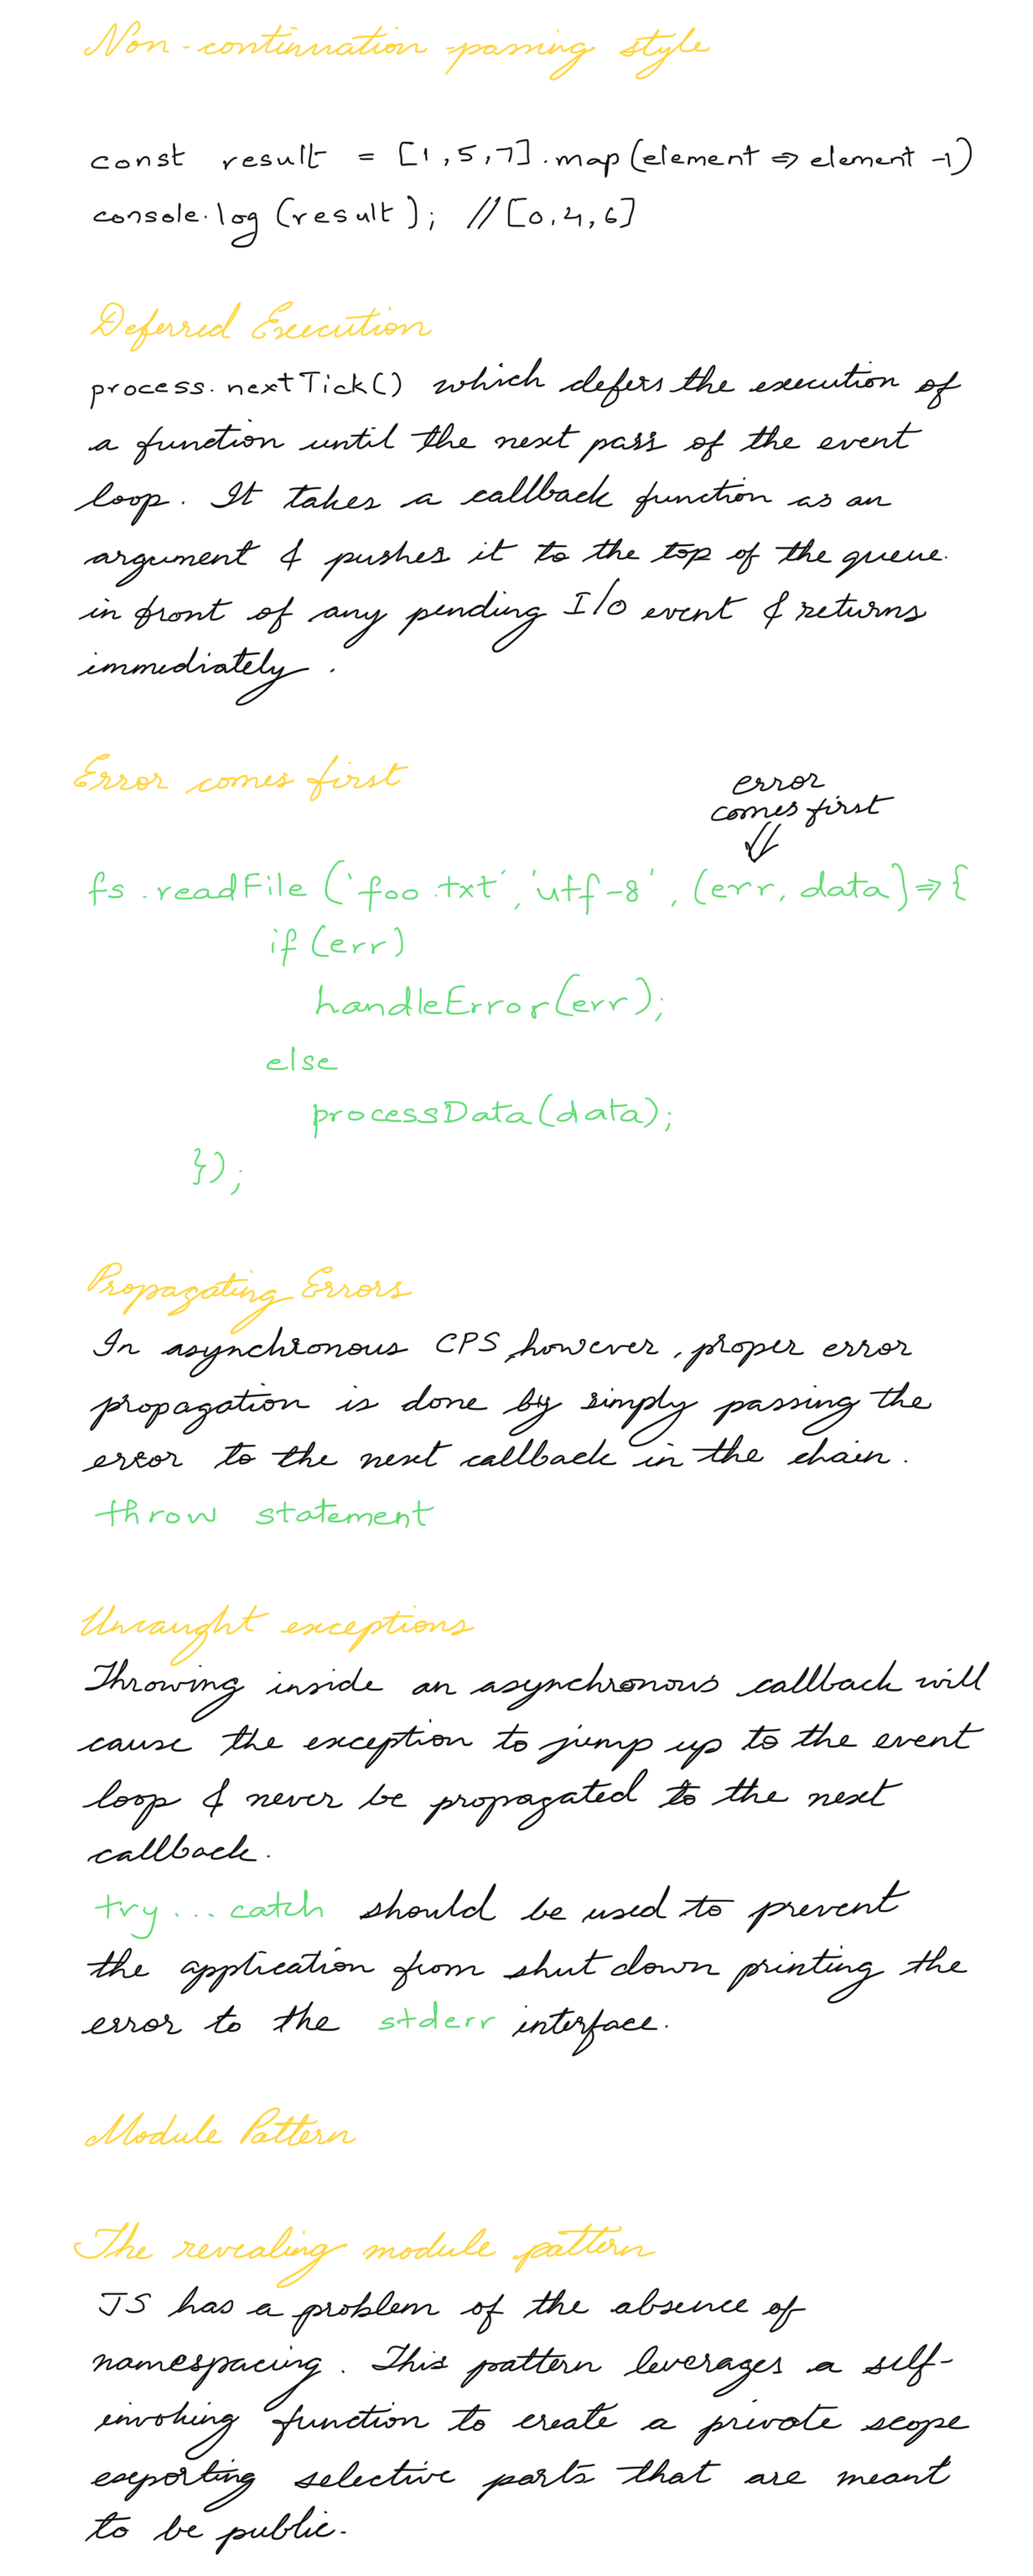 Non-continuation-passing style
const result = [1,5,7].map(element => element -1)
console.log(result); //[0,4,6]
Deferred Execution
process.nextTick() which defers the execution of
a function until the next pass of the event
loop. It takes a callback function as an
argument & pushes it to the top of the queue.
in front of any pending I/O event & returns
immediately.
Error comes first
error
comes first
fs.readFile('foo.txt','utf-8',(err, data)=>{
if (err)
handleError(err);
else
processData(data);
});
Propagating Errors
In asynchronous CPS, however, proper error
propagation is done by simply passing the
error to the next callback in the chain.
throw statement
Uncaught exceptions
Throwing inside an asynchronous callback will
cause the exception to jump up to the event
loop & never be propagated to the next
callback.
try...catch should be used to prevent
the application from shut down printing the
error to the stderr interface.
Module Pattern
The revealing module pattern
JS has a problem of the absence of
namespacing. This pattern leverages a self-
invoking function to create a private scope
exporting selective parts that are meant
to be public.